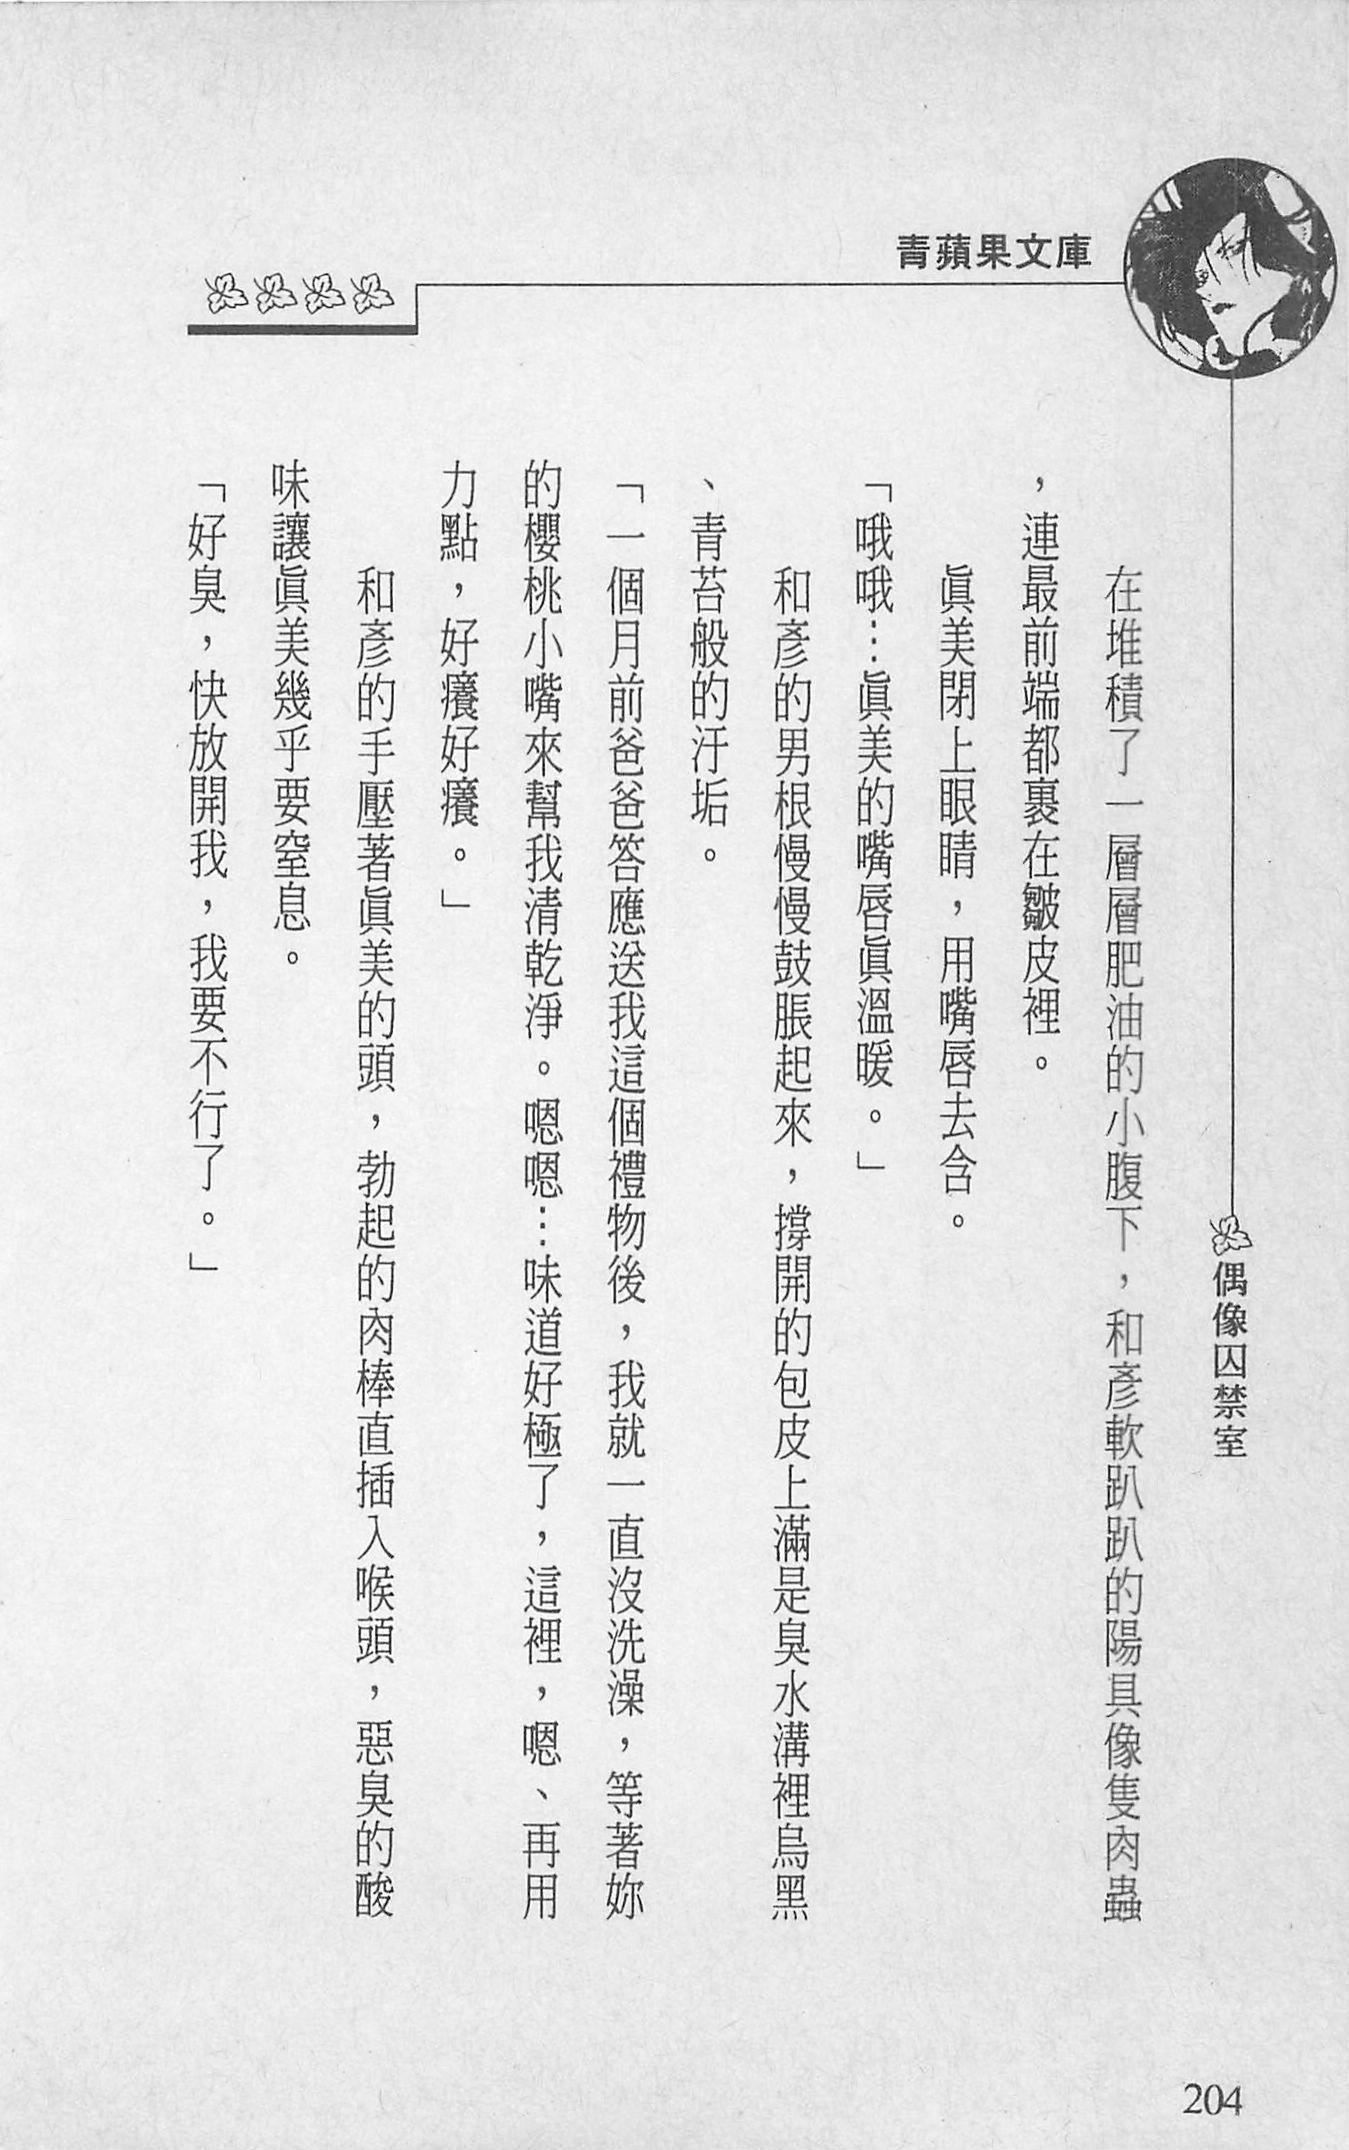 青蘋果文庫
偶像囚禁室
在堆積了一層層肥油的小腹下，和彥軟趴趴的陽具像隻肉蟲
，連最前端都裹在皺皮裡。
眞美閉上眼睛，用嘴唇去含。
「哦哦…眞美的嘴唇眞溫暖。」
和彥的男根慢慢鼓脹起來，撐開的包皮上滿是臭水溝裡烏黑
、青苔般的汙垢。
「一個月前爸爸答應送我這個禮物後，我就一直沒洗澡，等著妳
的櫻桃小嘴來幫我清乾淨。嗯嗯…味道好極了，這裡，嗯、再用
力點，好癢好癢。」
和彥的手壓著眞美的頭，勃起的肉棒直插入喉頭，惡臭的酸
味讓眞美幾乎要窒息。
「好臭，快放開我，我要不行了。」
204